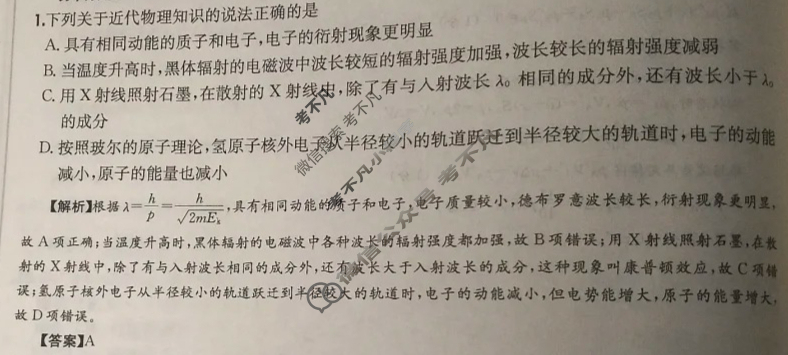 1.下列关于近代物理知识的说法正确的是
A.具有相同动能的质子和电子,电子的衍射现象更明显
B.当温度升高时,黑体辐射的电磁波中波长较短的辐射强度加强,波长较长的辐射强度减弱
C.用X射线照射石墨,在散射的X射线中,除了有与入射波长λ₀相同的成分外,还有波长小于λ₀
的成分
D.按照玻尔的原子理论,氢原子核外电子从半径较小的轨道跃迁到半径较大的轨道时,电子的动能
减小,原子的能量也减小
【解析】根据λ=h/p=h/√2mEₖ,具有相同动能的质子和电子,电子质量较小,德布罗意波长较长,衍射现象更明显,
故A项正确;当温度升高时,黑体辐射的电磁波中各种波长的辐射强度都加强,故B项错误;用X射线照射石墨,在散
射的X射线中,除了有与入射波长相同的成分外,还有波长大于入射波长的成分,这种现象叫康普顿效应,故C项错
误;氢原子核外电子从半径较小的轨道跃迁到半径较大的轨道时,电子的动能减小,但电势能增大,原子的能量增大,
故D项错误。
【答案】A
考不凡
微信搜索 考不凡
考不凡小
微信公众号 考不凡